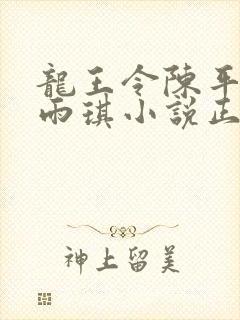 龍王令陳平
雨琪小說正
神上留美